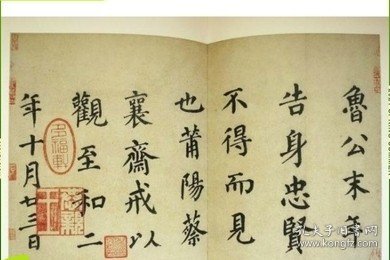 魯公末年
告身忠賢
不得而見
也莆陽蔡
襄齋戒以
觀至和二
年十月廿三日
多福軒
孔夫子旧书网